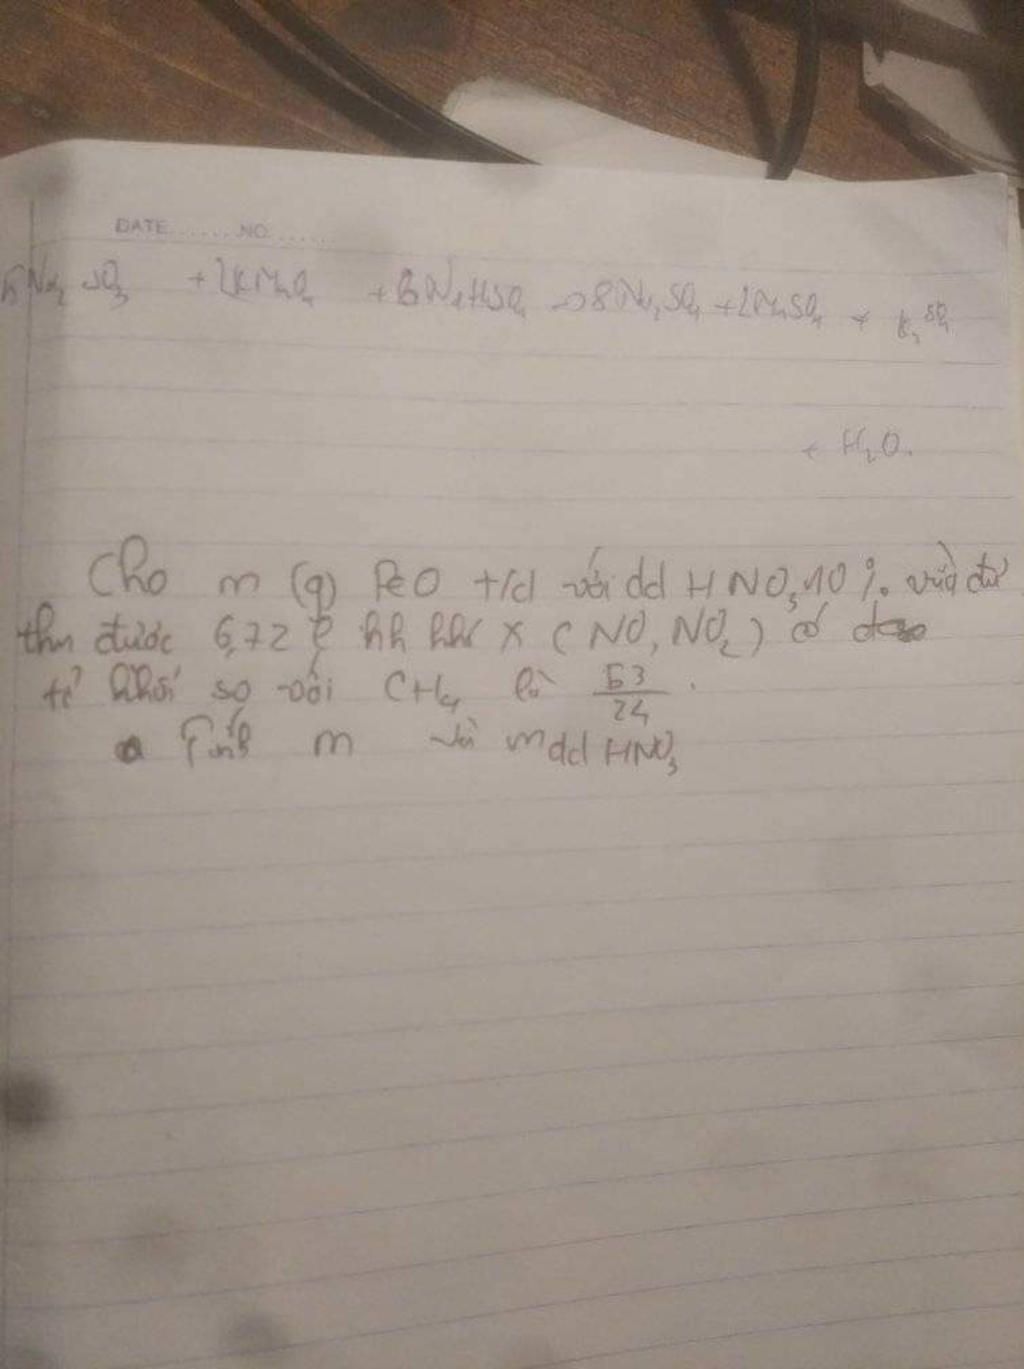 DATE.......NO.......
5Na₂SO₃ +2KMnO₄ +6NaHSO₄ → 8Na₂SO₄ +2MnSO₄ + K₂SO₄
+ H₂O.
Cho m (g) FeO t/d với dd HNO₃ 10% vừa đủ
thu được 6,72 l hh khí X (NO, NO₂) có
tỉ khối so với CH₄ là 53/24.
a Tính m và mdd HNO₃